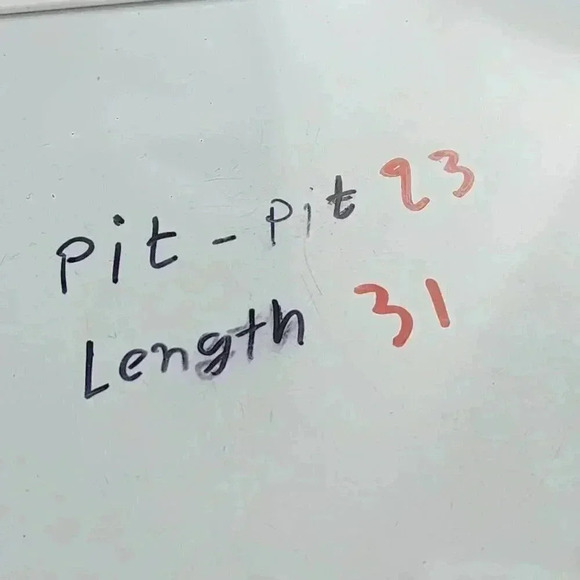 Pit - Pit 23
Length 31